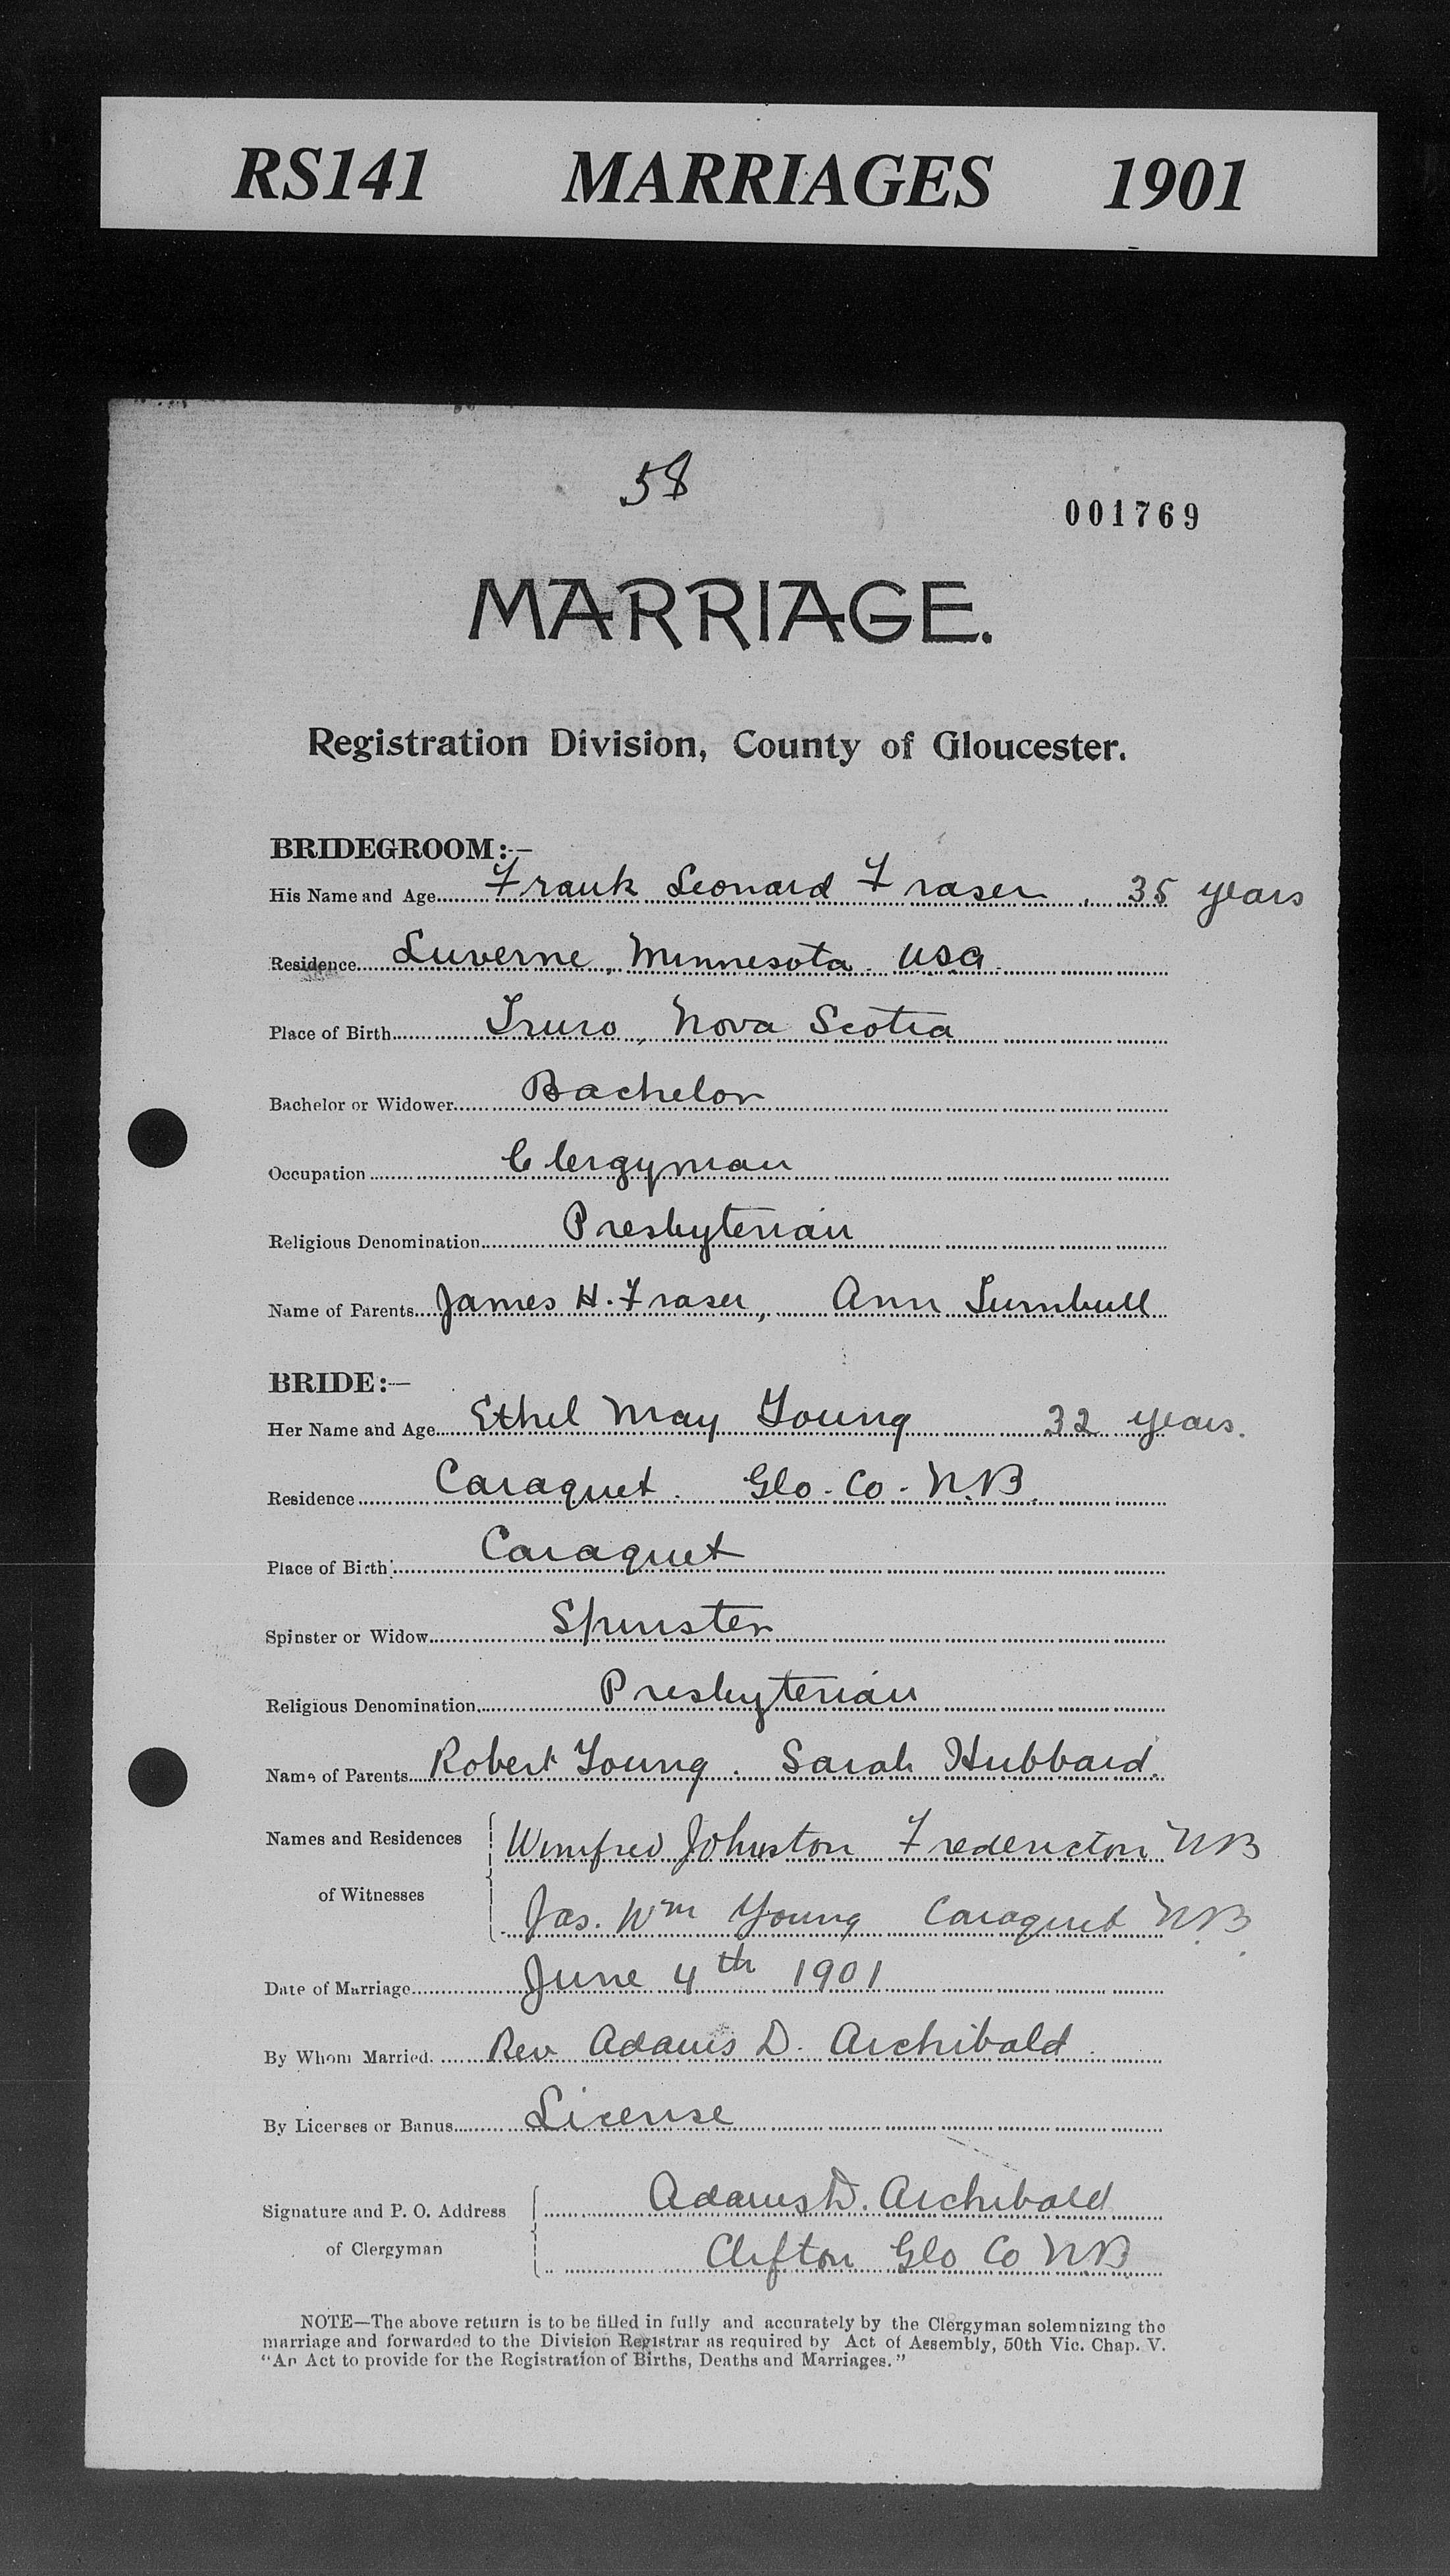 RS141 MARRIAGES 1901
58
001769
MARRIAGE.
Registration Division, County of Gloucester.
BRIDEGROOM:—
His Name and Age Frank Leonard Fraser, 35 years
Residence Luverne, Minnesota USA
Place of Birth Truro, Nova Scotia
Bachelor or Widower Bachelor
Occupation Clergyman
Religious Denomination Presbyterian
Name of Parents James H. Fraser, Ann Turnbull
BRIDE:—
Her Name and Age Ethel May Young 32 years.
Residence Caraquet. Glo. Co. N.B.
Place of Birth Caraquet
Spinster or Widow Spinster
Religious Denomination Presbyterian
Name of Parents Robert Young. Sarah Hubbard.
Names and Residences of Witnesses Winifred Johnston Fredericton NB
Jas. Wm Young Caraquet N.B.
Date of Marriage June 4th 1901
By Whom Married. Rev Adams D. Archibald
By Licenses or Banns License
Signature and P. O. Address of Clergyman Adams D. Archibald
Clifton Glo Co N.B.
NOTE—The above return is to be filled in fully and accurately by the Clergyman solemnizing the
marriage and forwarded to the Division Registrar as required by Act of Assembly, 50th Vic. Chap. V.
"An Act to provide for the Registration of Births, Deaths and Marriages."